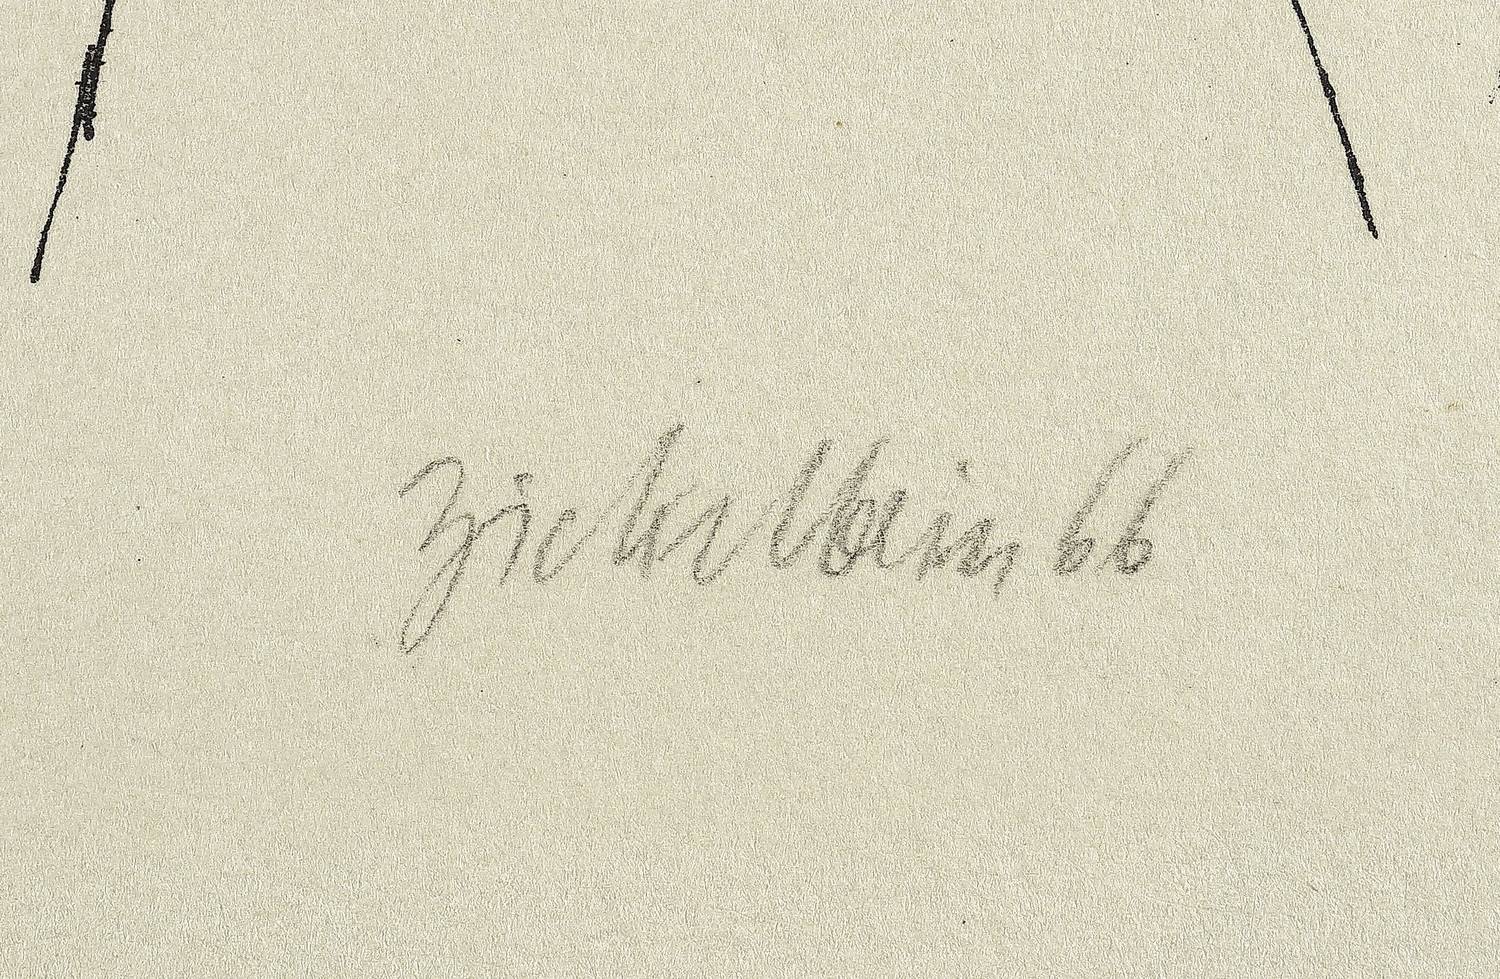 Zickelbein 66